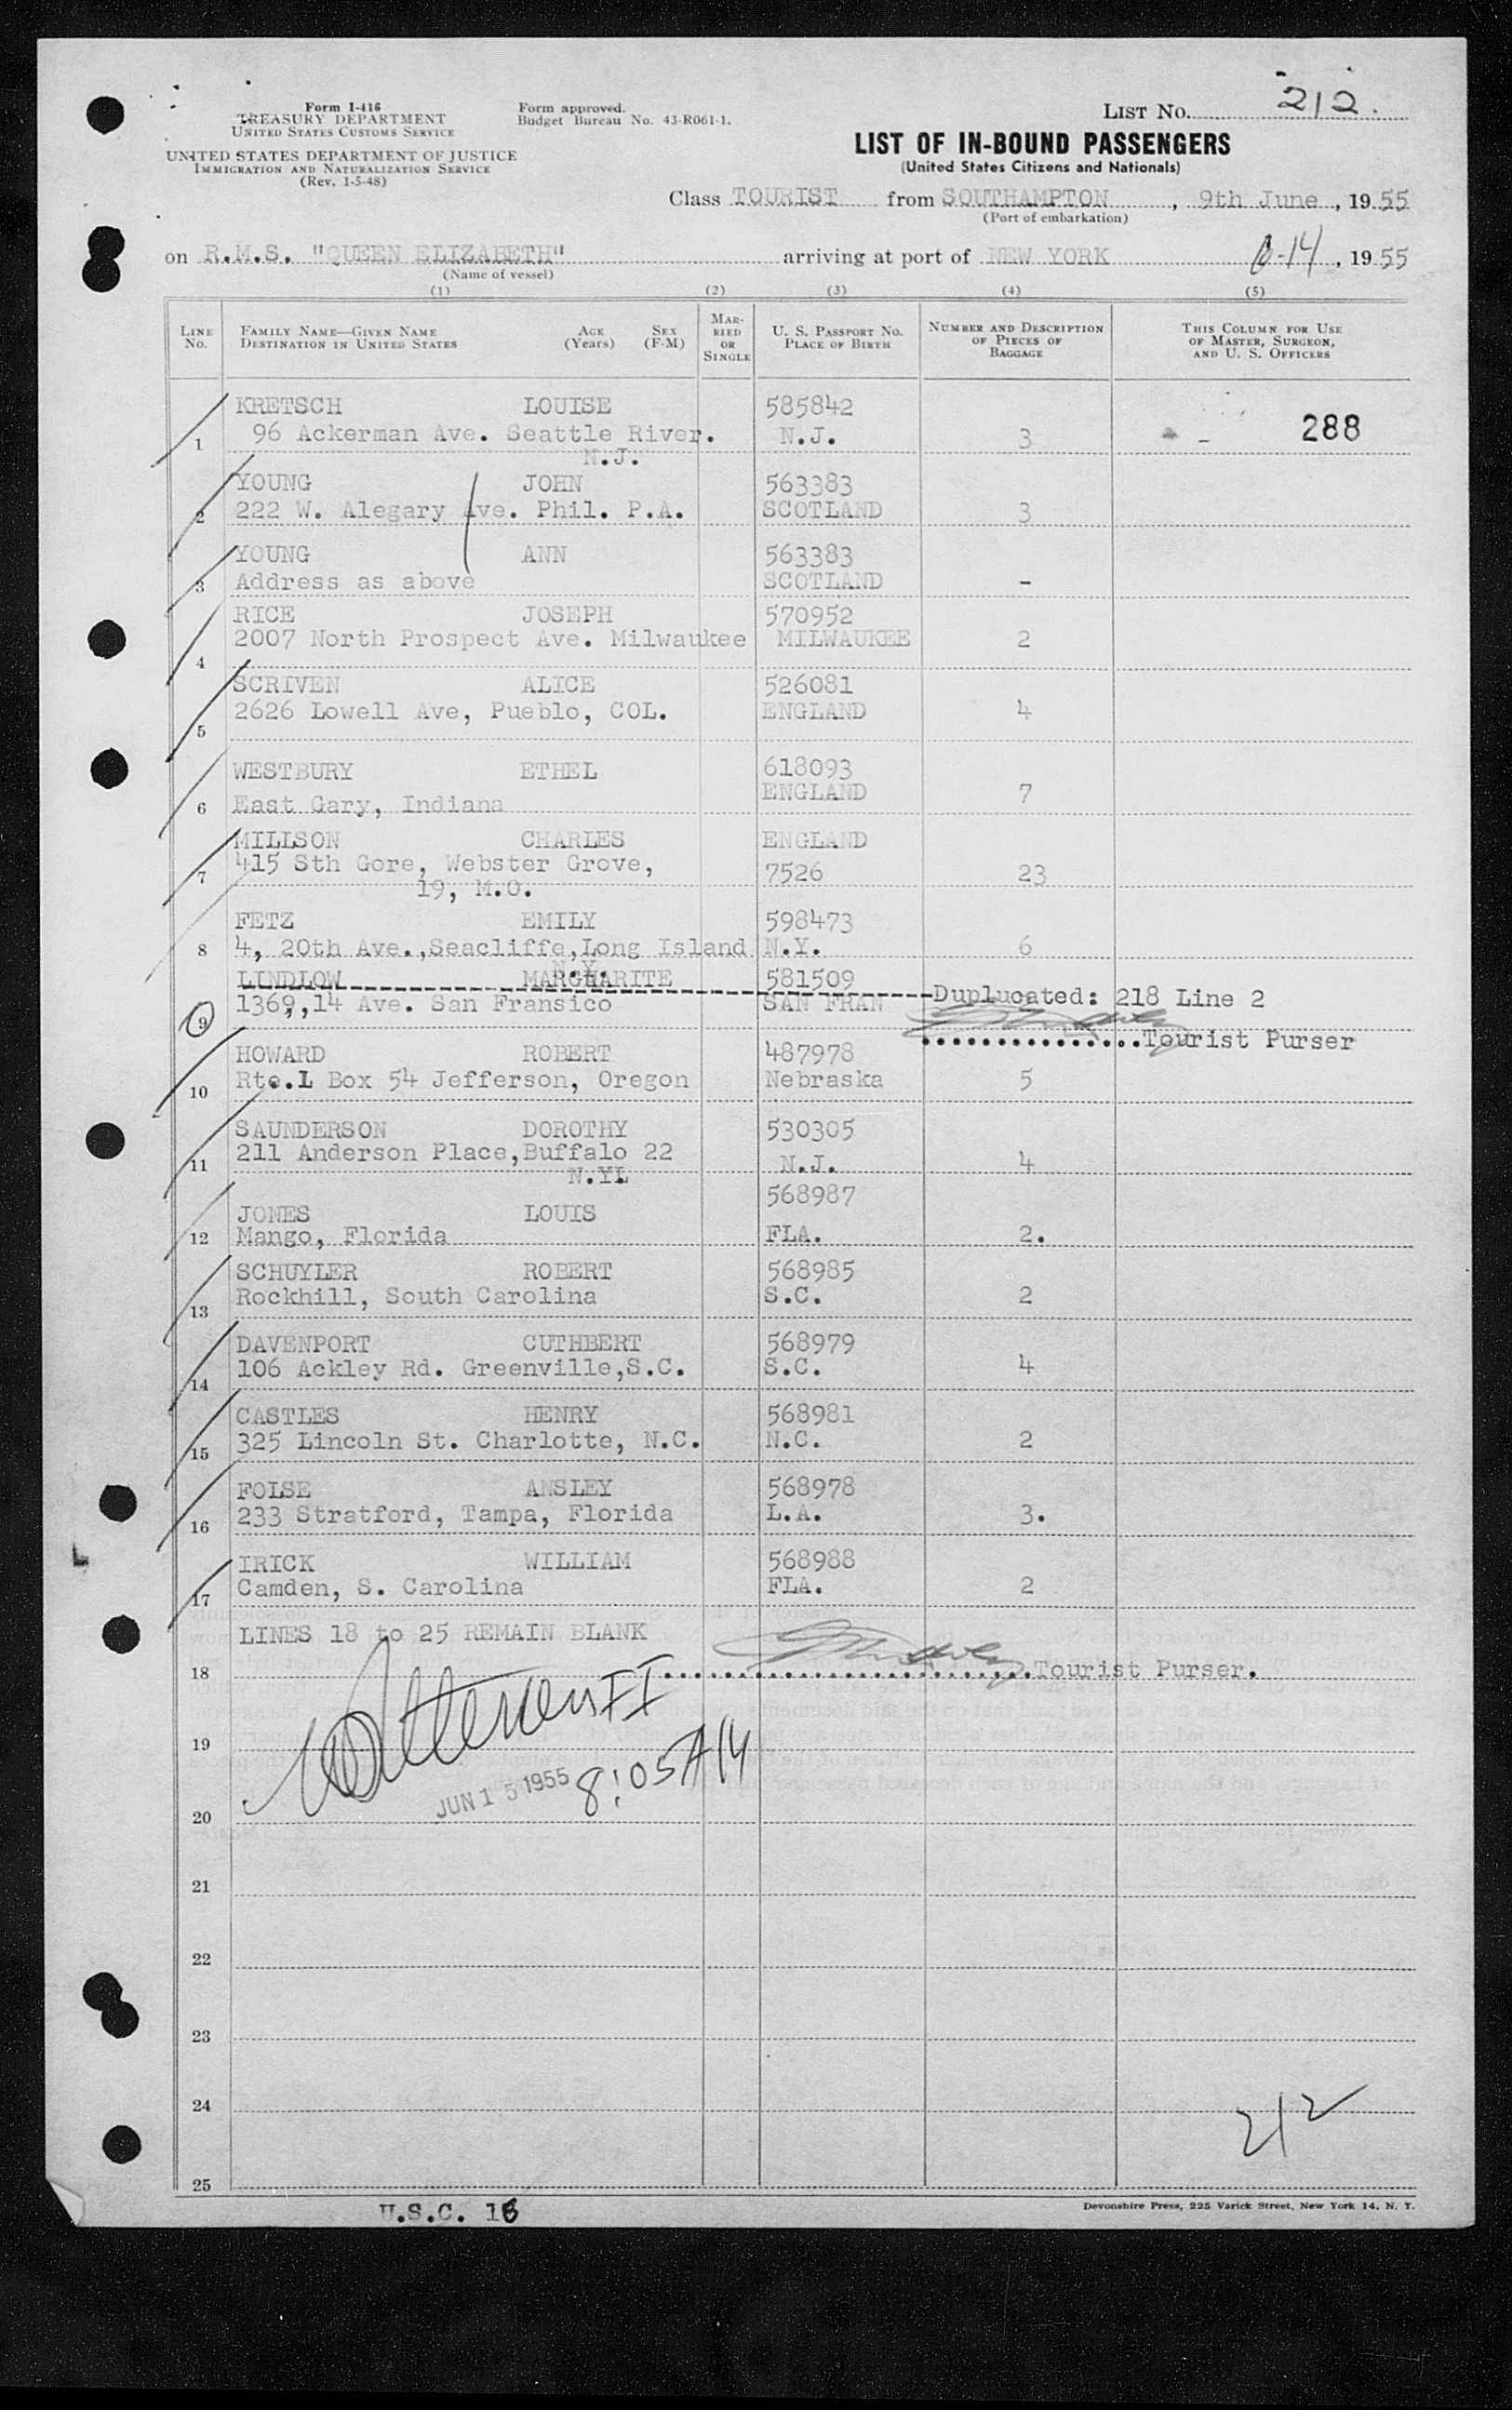 Form I-416
TREASURY DEPARTMENT
UNITED STATES CUSTOMS SERVICE
UNITED STATES DEPARTMENT OF JUSTICE
IMMIGRATION AND NATURALIZATION SERVICE
(Rev. 1-5-48)
Form approved.
Budget Bureau No. 43-R061-1.
LIST No. 212.
LIST OF IN-BOUND PASSENGERS
(United States Citizens and Nationals)
Class TOURIST from SOUTHAMPTON, 9th June, 1955
(Port of embarkation)
on R.M.S. "QUEEN ELIZABETH" arriving at port of NEW YORK 6-14, 1955
(Name of vessel)
(1) (2) (3) (4) (5)
LINE No. FAMILY NAME—GIVEN NAME DESTINATION IN UNITED STATES AGE (Years) SEX (F-M) MARRIED OR SINGLE U. S. PASSPORT No. PLACE OF BIRTH NUMBER AND DESCRIPTION OF PIECES OF BAGGAGE THIS COLUMN FOR USE OF MASTER, SURGEON, AND U. S. OFFICERS
KRETSCH LOUISE 585842
1 96 Ackerman Ave. Seattle River. N.J. 3 288
N.J.
YOUNG JOHN 563383
2 222 W. Alegary Ave. Phil. P.A. SCOTLAND 3
YOUNG ANN 563383
3 Address as above SCOTLAND -
RICE JOSEPH 570952
2007 North Prospect Ave. Milwaukee MILWAUKEE 2
4
SCRIVEN ALICE 526081
2626 Lowell Ave, Pueblo, COL. ENGLAND 4
5
WESTBURY ETHEL 618093
ENGLAND 7
6 East Gary, Indiana
MILLSON CHARLES ENGLAND
415 Sth Gore, Webster Grove,
7 7526 23
19, M.O.
FETZ EMILY 598473
8 4, 20th Ave.,Seacliffe,Long Island N.Y. 6
N.Y.
LINDLOW MARGHARITE 581509
1369,,14 Ave. San Fransico SAN FRAN Duplucated: 218 Line 2
9
...............Tourist Purser
HOWARD ROBERT 487978
10 Rte.1 Box 54 Jefferson, Oregon Nebraska 5
SAUNDERSON DOROTHY 530305
211 Anderson Place,Buffalo 22
11 N.J. 4
N.YL
568987
JONES LOUIS
12 Mango, Florida FLA. 2.
SCHUYLER ROBERT 568985
13 Rockhill, South Carolina S.C. 2
DAVENPORT CUTHBERT 568979
14 106 Ackley Rd. Greenville,S.C. S.C. 4
CASTLES HENRY 568981
15 325 Lincoln St. Charlotte, N.C. N.C. 2
FOLSE ANSLEY 568978
16 233 Stratford, Tampa, Florida L.A. 3.
IRICK WILLIAM 568988
17 Camden, S. Carolina FLA. 2
LINES 18 to 25 REMAIN BLANK
18 ........................Tourist Purser.
II
19
JUN 15 1955 8:05 A
20
21
22
23
24
212
25
U.S.C. 16
Devonshire Press, 225 Varick Street, New York 14, N. Y.